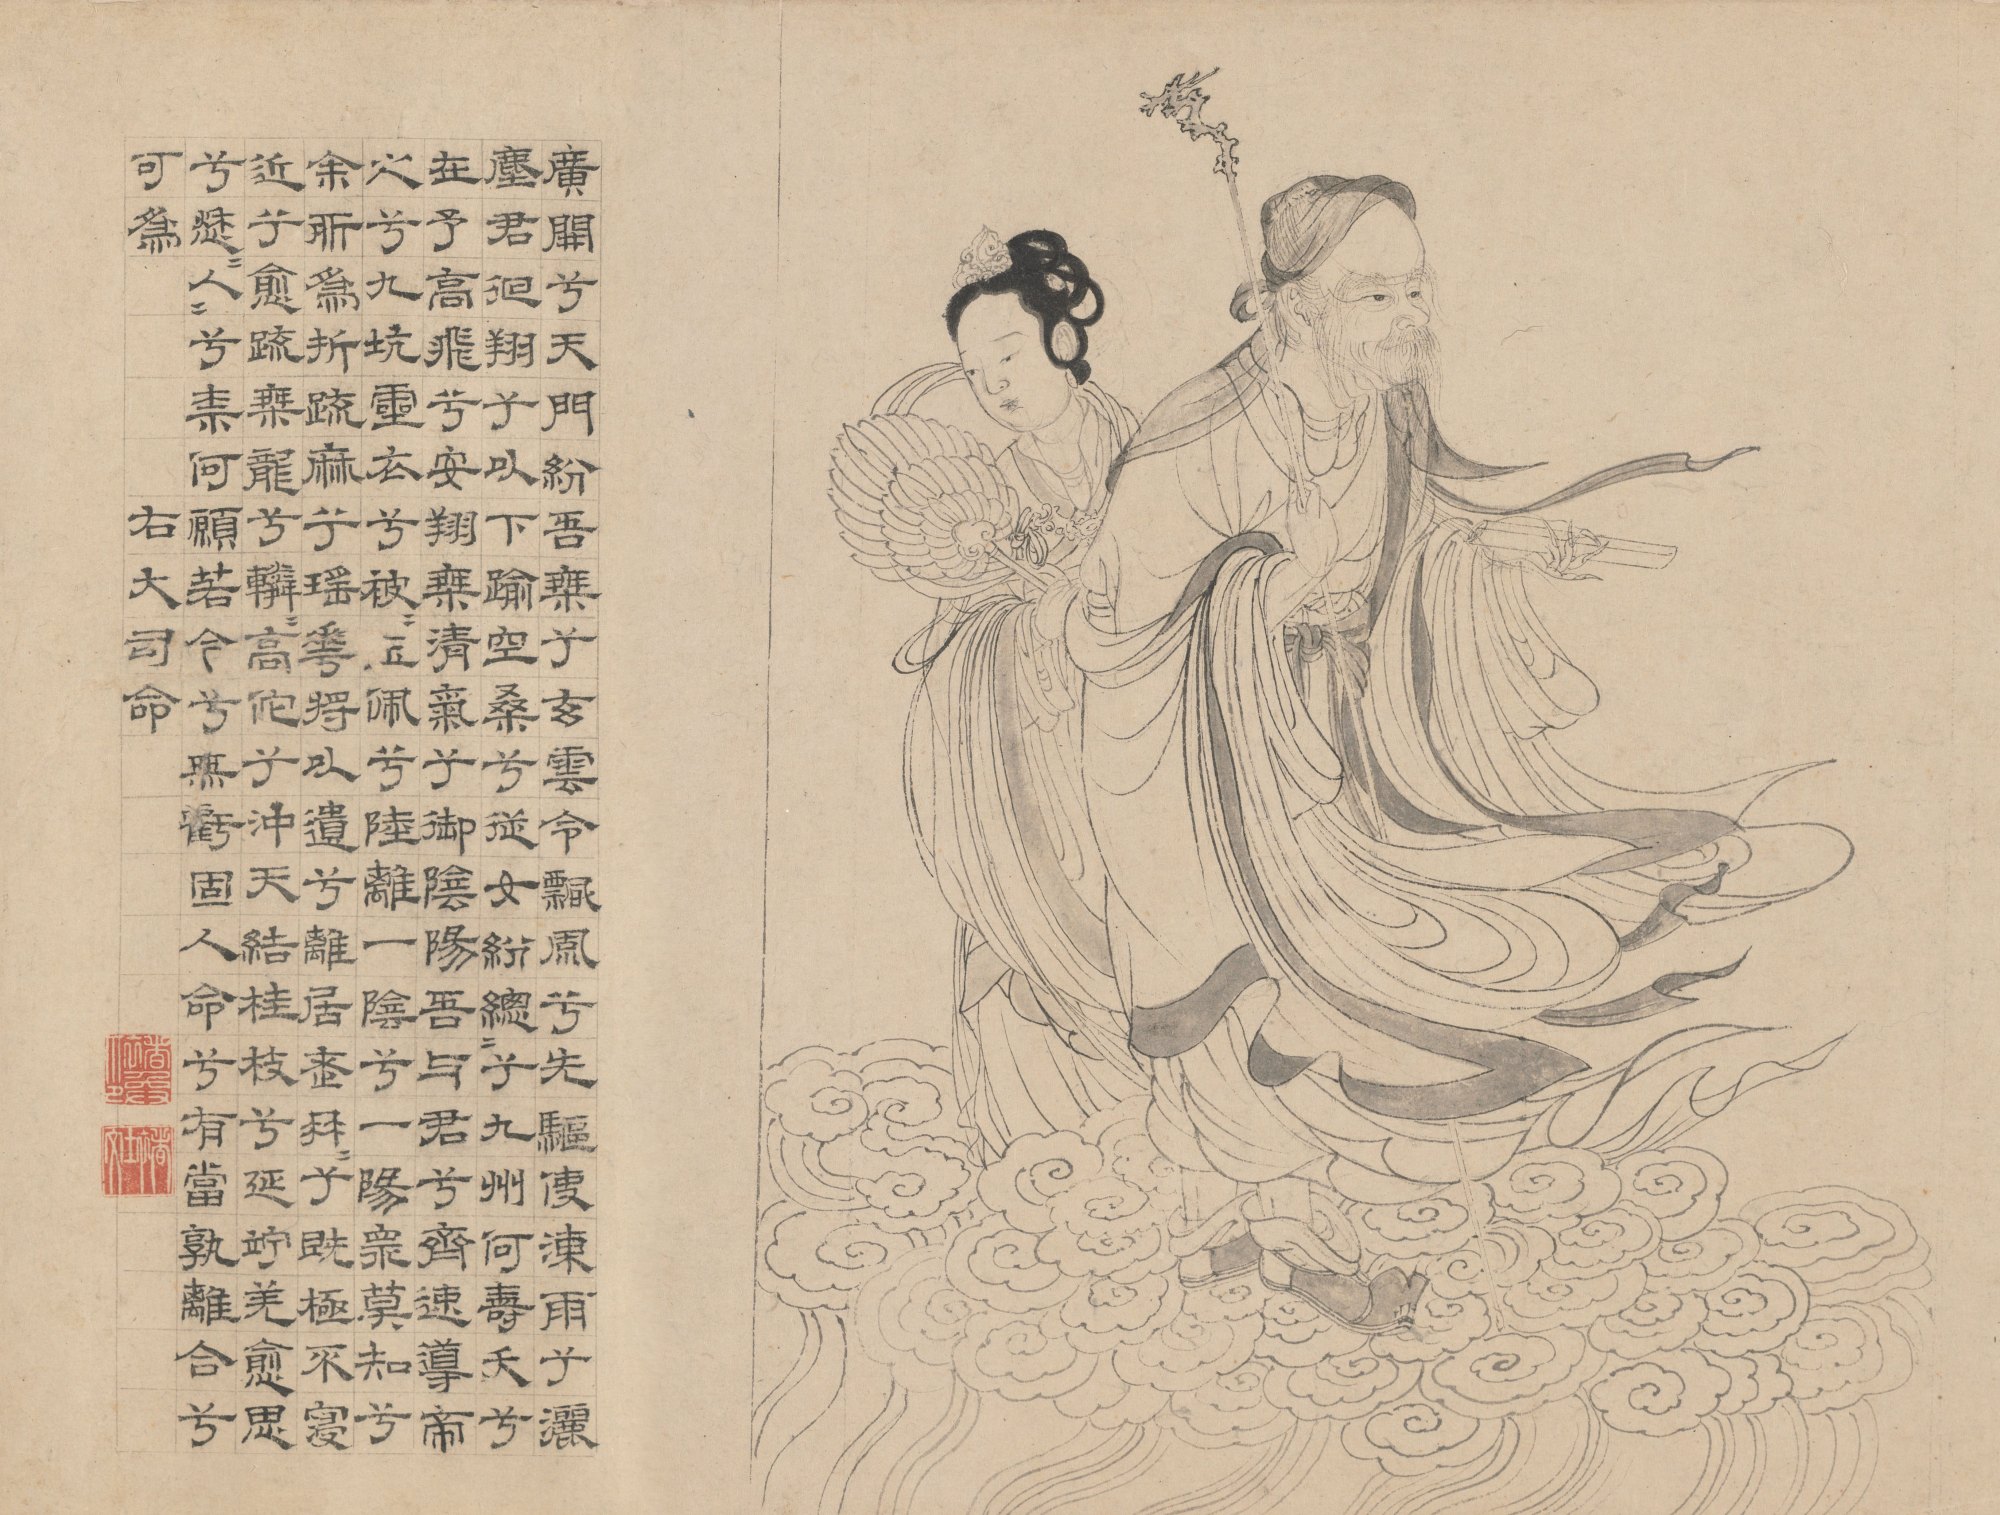 廣開兮天門紛吾椉兮玄雲令飄風兮先驅使涷雨兮灑
塵君徊翔兮㠯下踰空桑兮從女紛總〻兮九州何壽夭兮
在予高飛兮安翔椉清氣兮御陰陽吾与君兮齊速導帝
之兮九坑靈衣兮被〻玉佩兮陸離一陰兮一陽衆莫知兮
余所爲折疏麻兮瑶華將㠯遺兮離居老冉〻兮既極不寖
近兮愈疏椉龍兮轔〻高佗兮沖天結桂枝兮延竚羌愈思
兮愁〻人〻兮柰何願若今兮無虧固人命兮有當孰離合兮
可爲
右大司命